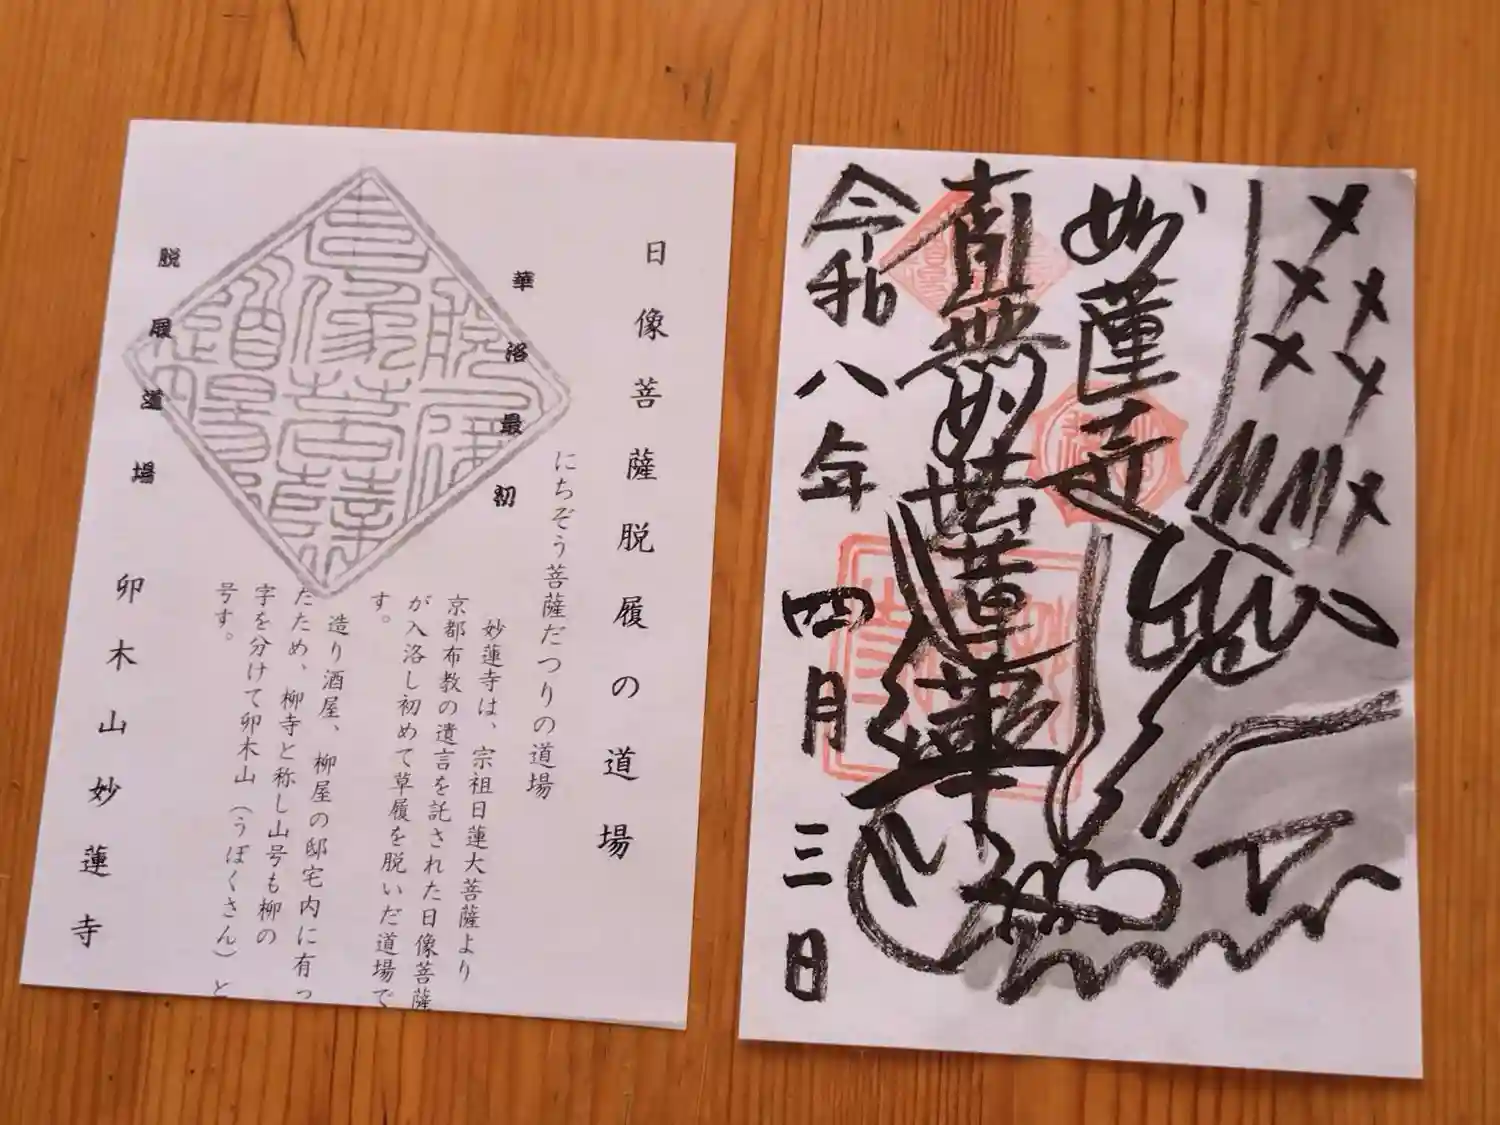 日像菩薩脱履の道場
にちぞう菩薩だつりの道場
華洛最初
脱履道場
妙蓮寺は、宗祖日蓮大菩薩より
京都布教の遺言を託された日像菩薩
が入洛し初めて草履を脱いだ道場で
す。
造り酒屋、柳屋の邸宅内に有っ
たため、柳寺と称し山号も柳の
字を分けて卯木山（うぼくさん）と
号す。
卯木山妙蓮寺
妙蓮寺
南無妙法蓮華
令和八年四月三日